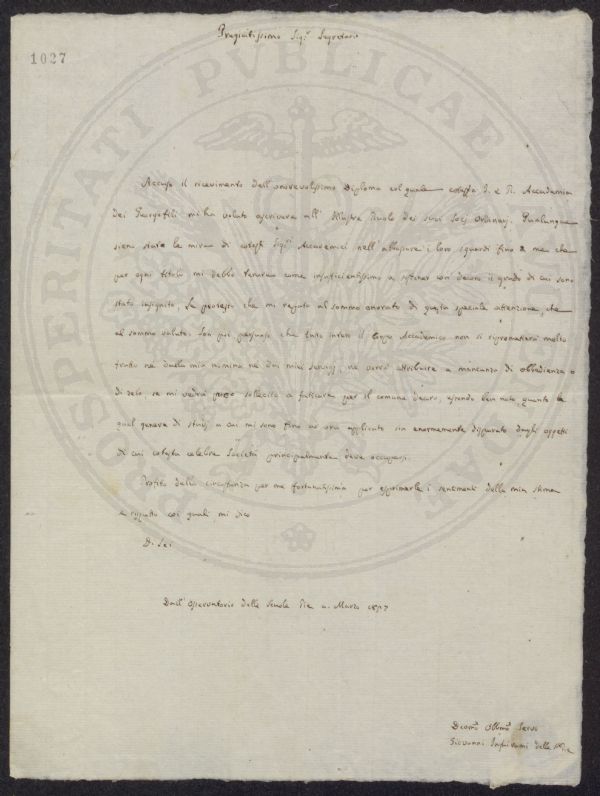 Pregiatissimo Sig.r Segretario
1027
PROSPERITATI PVBLICAE
Accuso il ricevimento dell'onorevolissimo Diploma col quale cotesta I. e R. Accademia
dei Georgofili mi ha voluto ascrivere all'Illustre Ruolo dei suoi Socj Ordinarj. Qualunque
sieno state le mire di cotesti Sigg.i Accademici nell'abbassare i loro sguardi fino a me che
per ogni titolo mi debbo tenere come insufficientissimo a sostener con decoro il grado di cui sono
stato insignito, Le protesto che mi reputo al sommo onorato di questa speciale attenzione, che
al sommo valuto. Son poi persuaso che tutto intero il Corpo Accademico non si ripromettera molto
frutto nè dalla mia nomina nè dai miei servigj, nè vorrà attribuire a mancanza di obbedienza o
di zelo, se mi vedrà poco sollecito a faticare per il comune decoro, essendo ben noto quanto la
qual genere di studj a cui mi sono fino ad ora applicato sia enormemente disparato dagli oggetti
di cui cotesta celebre Società principalmente deve occuparsi.
Profitto della circostanza per me fortunatissima per esprimerle i sentimenti della mia stima
e rispetto coi quali mi dico
Di Lei
Dall'Osservatorio delle Scuole Pie Marzo 1817
Devmo Obbmo Servo
Giovanni Inghirami delle Pie